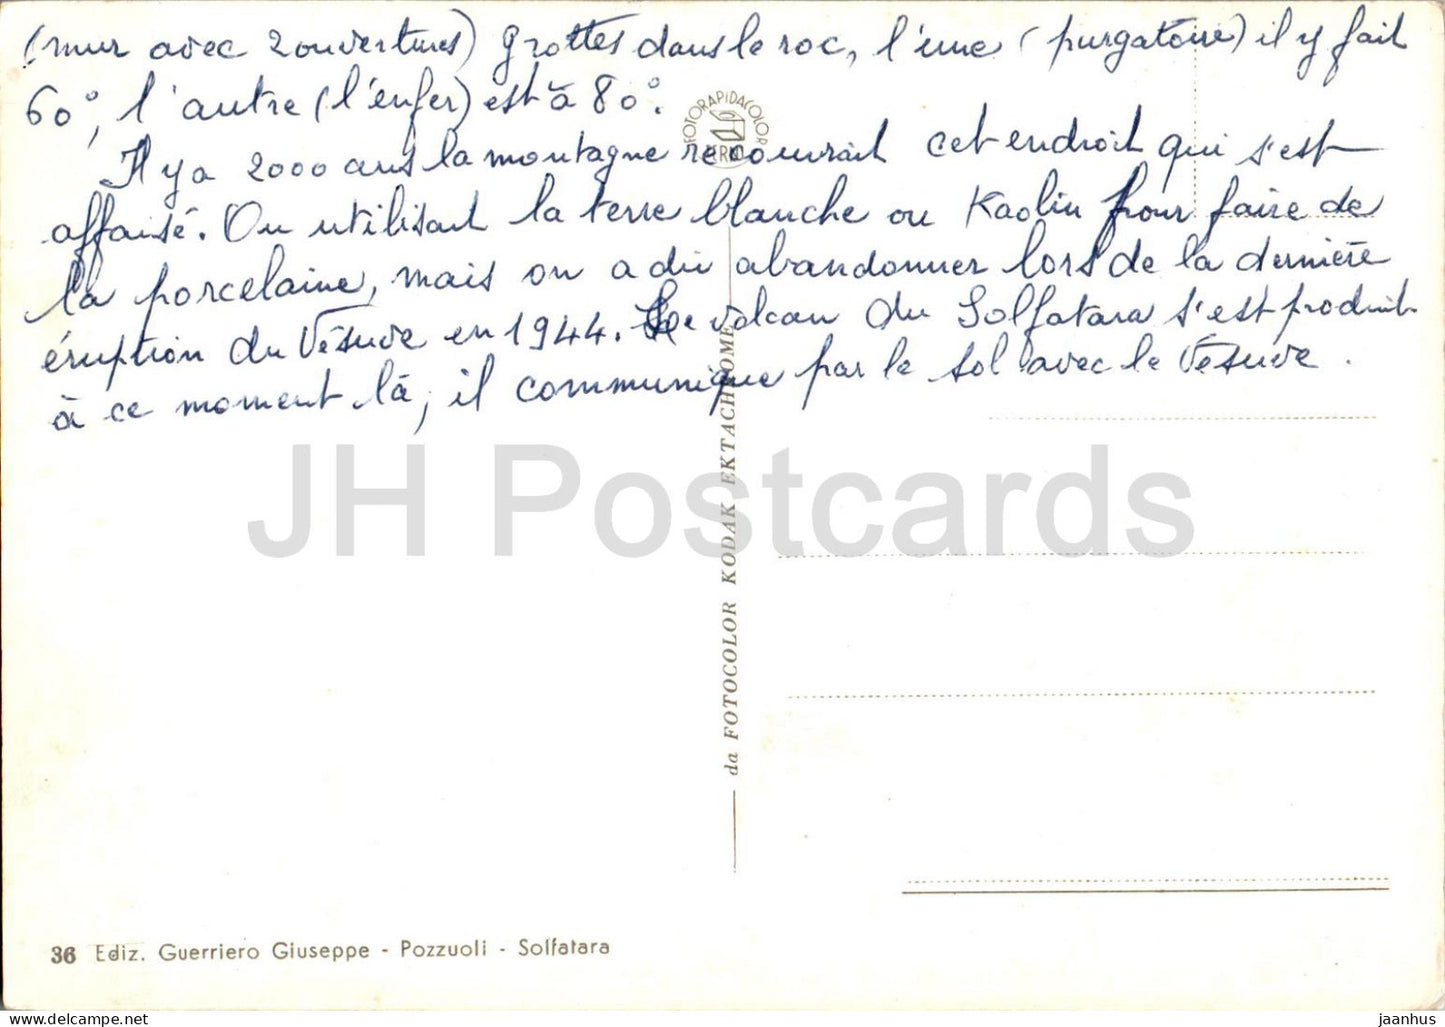 (mur avec 2 ouvertures) Grottes dans le roc, l'une (purgatoire) il y fait
60°, l'autre (l'enfer) est à 80°.
Il y a 2000 ans la montagne recouvrait cet endroit qui s'est
affaissé. On utilisait la terre blanche ou Kaolin pour faire de
la porcelaine, mais on a dû abandonner lors de la dernière
éruption du Vésuve en 1944. Le volcan du Solfatara s'est produit
à ce moment là, il communique par le sol avec le Vésuve.
FOTORAPIDACOLOR
da FOTOCOLOR KODAK EKTACHROME
JH Postcards
36 Ediz. Guerriero Giuseppe - Pozzuoli - Solfatara
jaanhus